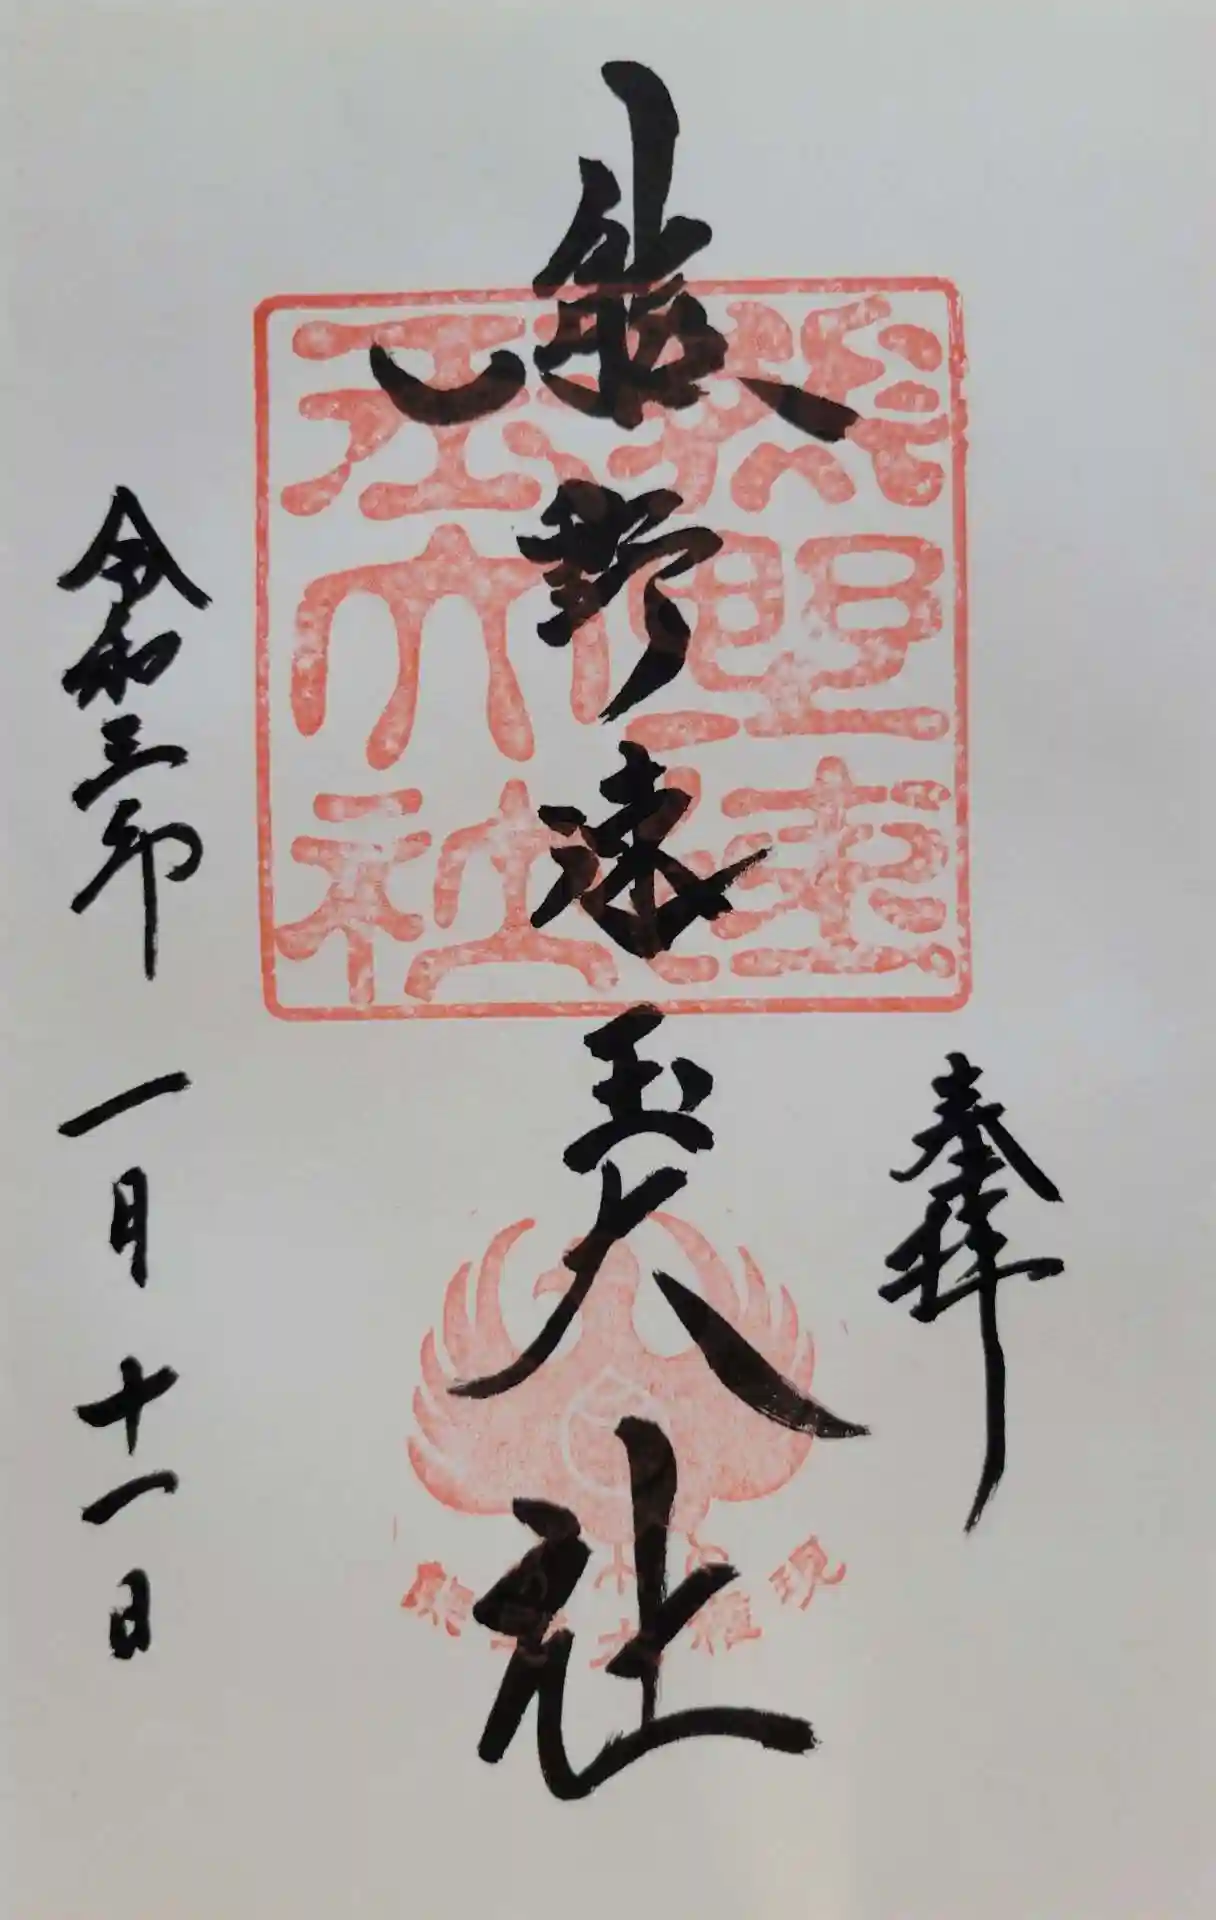 奉拝
熊野速玉大社
令和三年一月十一日
熊野速玉大社
熊野大権現